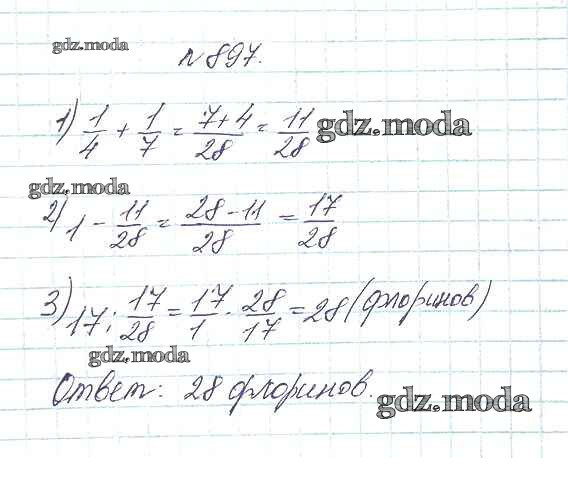 gdz.moda
№ 897.
1) 1/4 + 1/7 = 7+4/28 = 11/28 gdz.moda
gdz.moda
2) 1 - 11/28 = 28-11/28 = 17/28
3) 17 : 17/28 = 17/1 · 28/17 = 28 (флоринов)
gdz.moda
Ответ: 28 флоринов.
gdz.moda